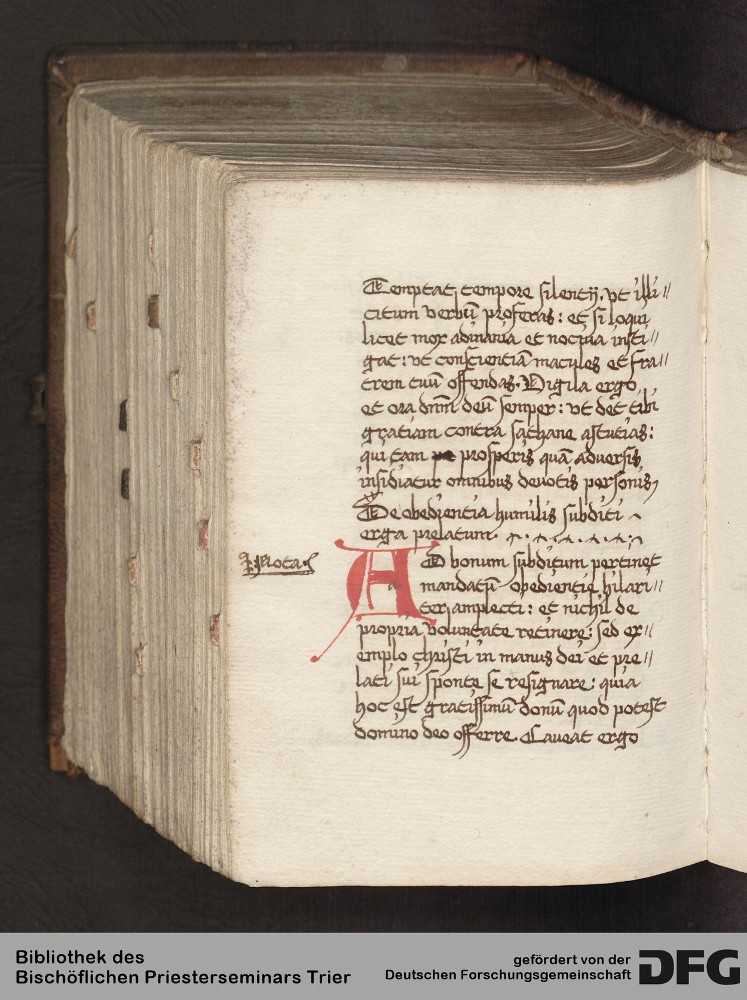 Temptat tempore silentij. vt illi//
citum verbũ proferas: et si loqui
licet mox adinania et nociua insti//
gat: vt conscientiã macules et fra//
trem tuũ offendas. Vigila ergo
et ora dnm̃ deũ semper: vt det tibi
gratiam contra sathane astutias:
qui tam prosperis quã aduersis
insidiatur omnibus deuotis personis
De obedientia humilis subditi
erga prelatum.
Nota
AD bonum subditum pertinet
mandatũ obedientie hilari//
ter amplecti: et nichil de
propria voluntate retinere: sed ex//
emplo christi in manus dei et pre//
lati sui sponte se resignare: quia
hoc est gratissimũ donũ quod potest
domino deo offerre. Caueat ergo
Bibliothek des
Bischöflichen Priesterseminars Trier
gefördert von der
Deutschen Forschungsgemeinschaft DFG